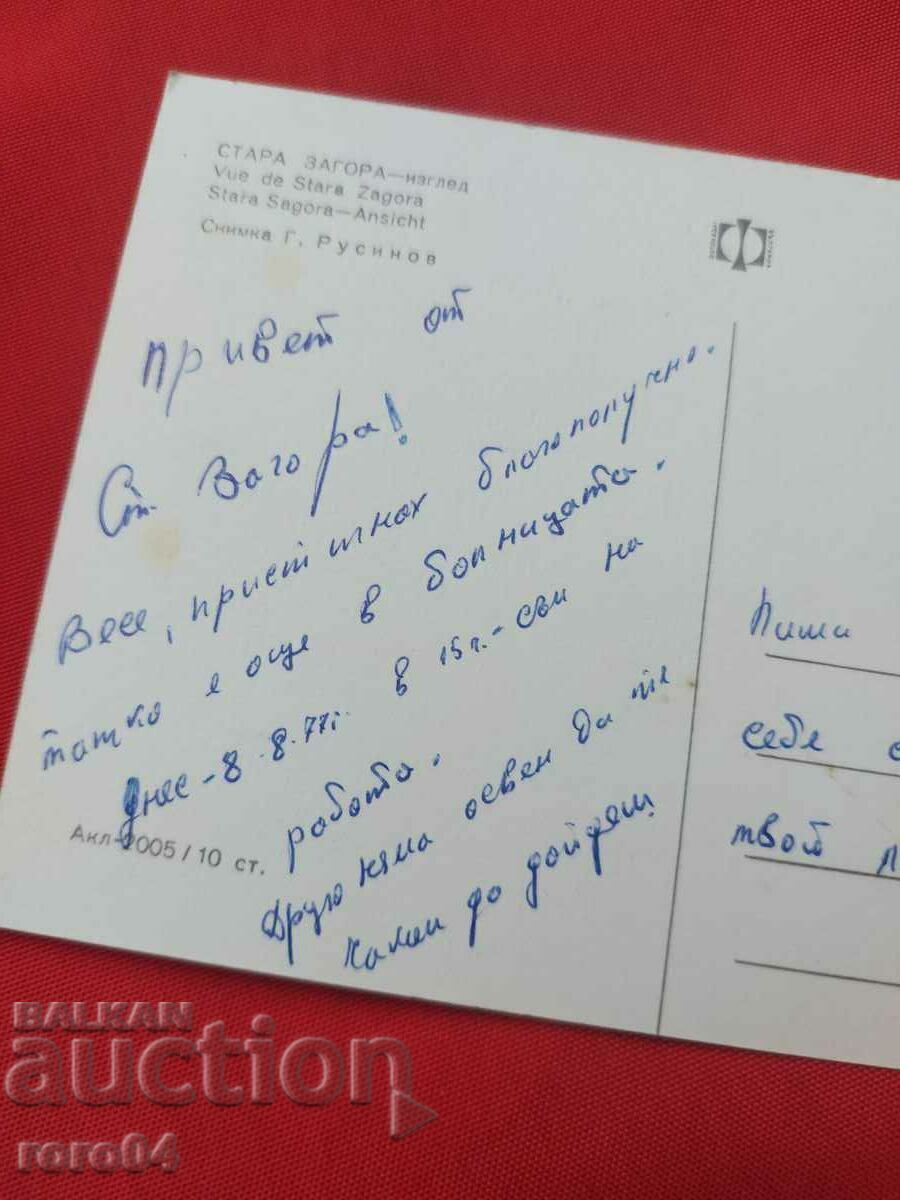 СТАРА ЗАГОРА—изглед
Vue de Stara Zagora
Stara Sagora—Ansicht
Снимка Г. Русинов
привет от
Ст. Загора!
Весе, пристигнах благополучно.
татко е още в болницата.
днес - 8.8.77г. в 15 г. - съм на
работа.
Друго няма освен да те
каним да дойдеш
Акл-2005/10 ст.
Пиши
себе
твой
BALKAN
auction
roro04